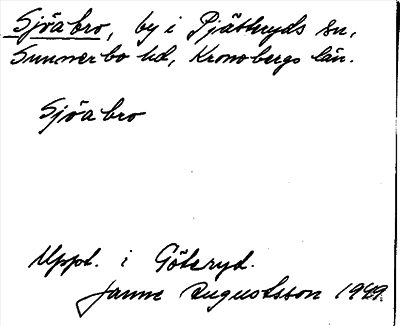 Sjöabro, by i Pjätteryds sn,
Sunnerbo hd, Kronobergs län.
Sjöabro
Uppt. i Göteryd.
Janne Augustsson 1949.